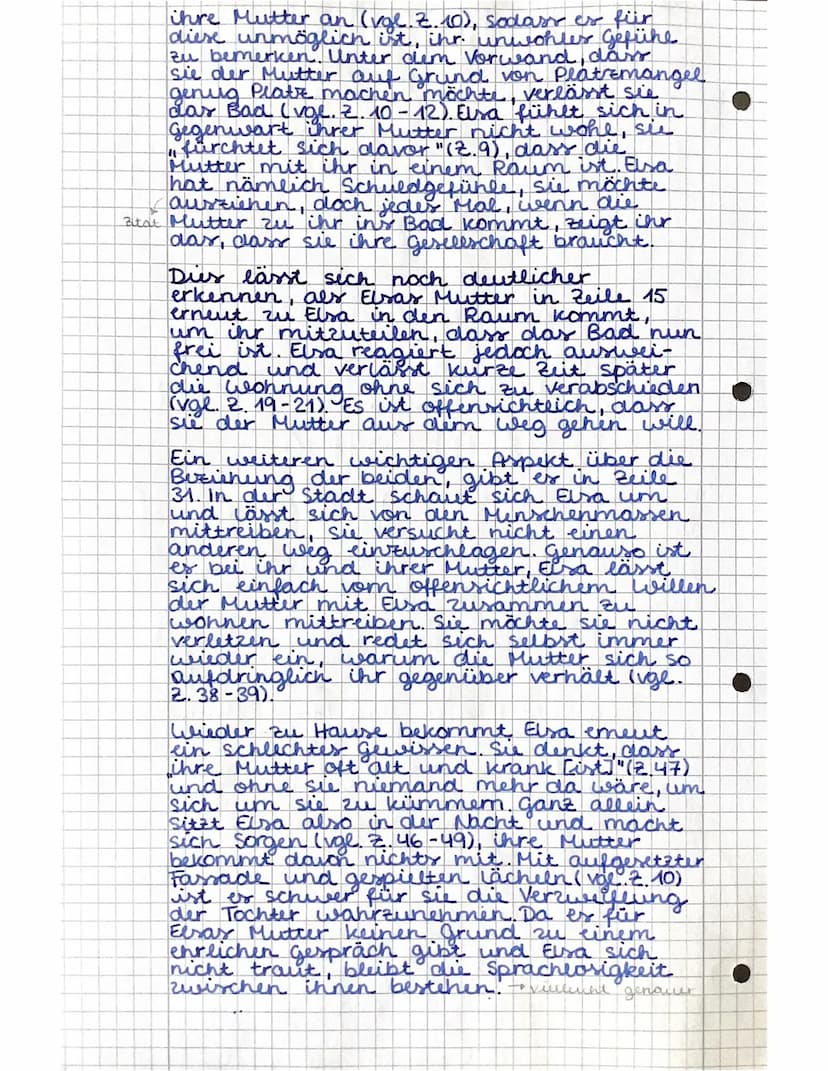 ihre Mutter an (vgl. Z. 10), sodass es für
diese unmöglich ist, ihr unwohles Gefühle
zu bemerken. Unter dem Vorwand, dass
sie der Mutter auf Grund von Platzmangel
genug Platz machen möchte, verlässt sie
das Bad (vgl. Z. 10-12). Elsa fühlt sich in
Gegenwart ihrer Mutter nicht wohl, sie
"fürchtet sich davor" (Z.9), dass die
Mutter mit ihr in einem Raum ist. Elsa
hat nämlich Schuldgefühle, sie möchte
ausziehen, doch jedes Mal, wenn die
Zitat Mutter zu ihr ins Bad kommt, zeigt ihr
das, dass sie ihre Gesellschaft braucht.
Dies lässt sich noch deutlicher
erkennen, als Elsas Mutter in Zeile 15
erneut zu Elsa in den Raum kommt,
um ihr mitzuteilen, dass das Bad nun
frei ist. Elsa reagiert jedoch auswei-
chend und verlässt kurze Zeit später
die Wohnung ohne sich zu verabschieden
(vgl. Z. 19-21). Es ist offensichtlich, dass
sie der Mutter aus dem Weg gehen will.
Ein weiteren wichtigen Aspekt über die
Beziehung der beiden, gibt es in Zeile
31. In der Stadt schaut sich Elsa um
und lässt sich von den Menschenmassen
mittreiben, sie versucht nicht einen
anderen Weg einzuschlagen. Genauso ist
es bei ihr und ihrer Mutter, Elsa lässt
sich einfach vom offensichtlichem Willen
der Mutter mit Elsa zusammen zu
wohnen mittreiben. Sie möchte sie nicht
verletzen und redet sich selbst immer
wieder ein, warum die Mutter sich so
aufdringlich ihr gegenüber verhält (vgl.
Z. 38-39).
Wieder zu Hause bekommt Elsa erneut
ein schlechtes Gewissen. Sie denkt, dass
"ihre Mutter oft alt und krank [ist]" (Z.47)
und ohne sie niemand mehr da wäre, um
sich um sie zu kümmern. Ganz allein
sitzt Elsa also in der Nacht und macht
sich Sorgen (vgl. Z. 46-49), ihre Mutter
bekommt davon nichts mit. Mit aufgesetzter
Fassade und gespielten Lächeln (vgl. Z. 10)
ist es schwer für sie die Verzweiflung
der Tochter wahrzunehmen. Da es für
Elsas Mutter keinen Grund zu einem
ehrlichen Gespräch gibt und Elsa sich
nicht traut, bleibt die Sprachlosigkeit
zwischen ihnen bestehen. → vielleicht genauer